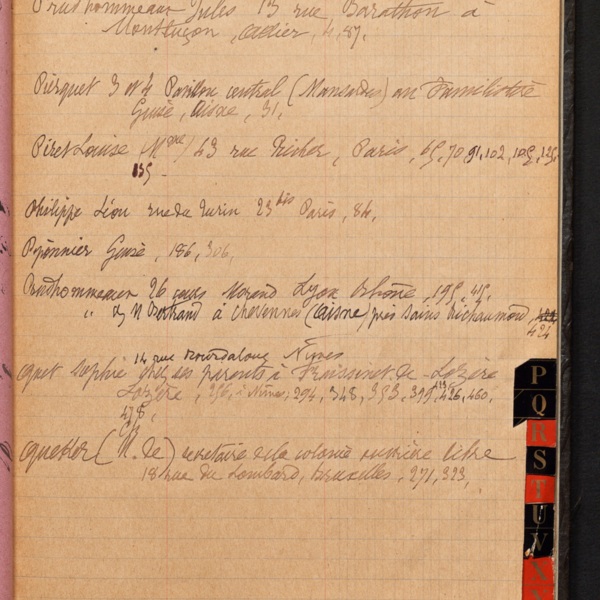 Prudhommeaux Jules 13 rue Barathon à
Montluçon, Allier, 4, 87.
Pierquet 3 et 4 Pavillon central (Mansardes) au Familistère
Guise, Aisne, 31,
Piret Louise Mme / 43 rue Richer, Paris, 65, 70, 91, 102, 105, 125,
135
Philippe Léon rue de Turin 23 bis Paris, 84,
Poponnier Guise, 186, 306,
Prudhommeaux 26 Lyon Rhône, 195, 415,
" à Chevennes (Aisne) près Sains Richaumont,
424
14 rue Bourdaloue Nîmes
Quet Sophie chez ses parents à Fraissinet de Lozère
Lozère, à Nîmes, 294, 348, 393, 399, 413, 426, 460,
478,
Quekker (N. de) secrétaire de la colonie ouvrière libre
18 rue du Lombard, Bruxelles, 271, 323,
P
Q
R
S
T
U
V
X